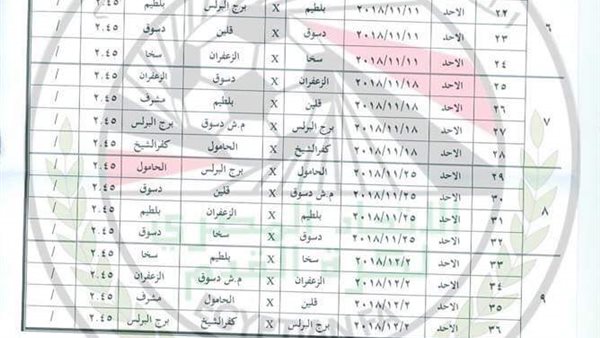 ٢٢ الاحد ٢٠١٨/١١/١١ بلطيم X برج البرلس ٢.٤٥ /
٦ ٢٣ الاحد ٢٠١٨/١١/١١ دسوق X قلين ٢.٤٥ /
٢٤ الاحد ٢٠١٨/١١/١١ سخا X الزعفران سخا ٢.٤٥ /
٢٥ الاحد ٢٠١٨/١١/١٨ الزعفران X دسوق الزعفران ٢.٤٥ /
٢٦ الاحد ٢٠١٨/١١/١٨ قلين X بلطيم مشرف ٢.٤٥ /
٧ ٢٧ الاحد ٢٠١٨/١١/١٨ برج البرلس X م.ش دسوق برج البرلس ٢.٤٥ /
٢٨ الاحد ٢٠١٨/١١/١٨ كفرالشيخ X الحامول كفرالشيخ ٢.٤٥ /
٢٩ الاحد ٢٠١٨/١١/٢٥ الحامول X برج البرلس الحامول ٢.٤٥ /
٣٠ الاحد ٢٠١٨/١١/٢٥ م.ش دسوق X قلين دسوق ٢.٤٥ /
٨ ٣١ الاحد ٢٠١٨/١١/٢٥ بلطيم X الزعفران بلطيم ٢.٤٥ /
٣٢ الاحد ٢٠١٨/١١/٢٥ دسوق X سخا دسوق ٢.٤٥ /
٣٣ الاحد ٢٠١٨/١٢/٢ سخا X بلطيم سخا ٢.٤٥ /
٣٤ الاحد ٢٠١٨/١٢/٢ الزعفران X م.ش دسوق الزعفران ٢.٤٥ /
٩ ٣٥ الاحد ٢٠١٨/١٢/٢ قلين X الحامول مشرف ٢.٤٥ /
٣٦ الاحد ٢٠١٨/١٢/٢ برج البرلس X كفرالشيخ برج البرلس ٢.٤٥ /